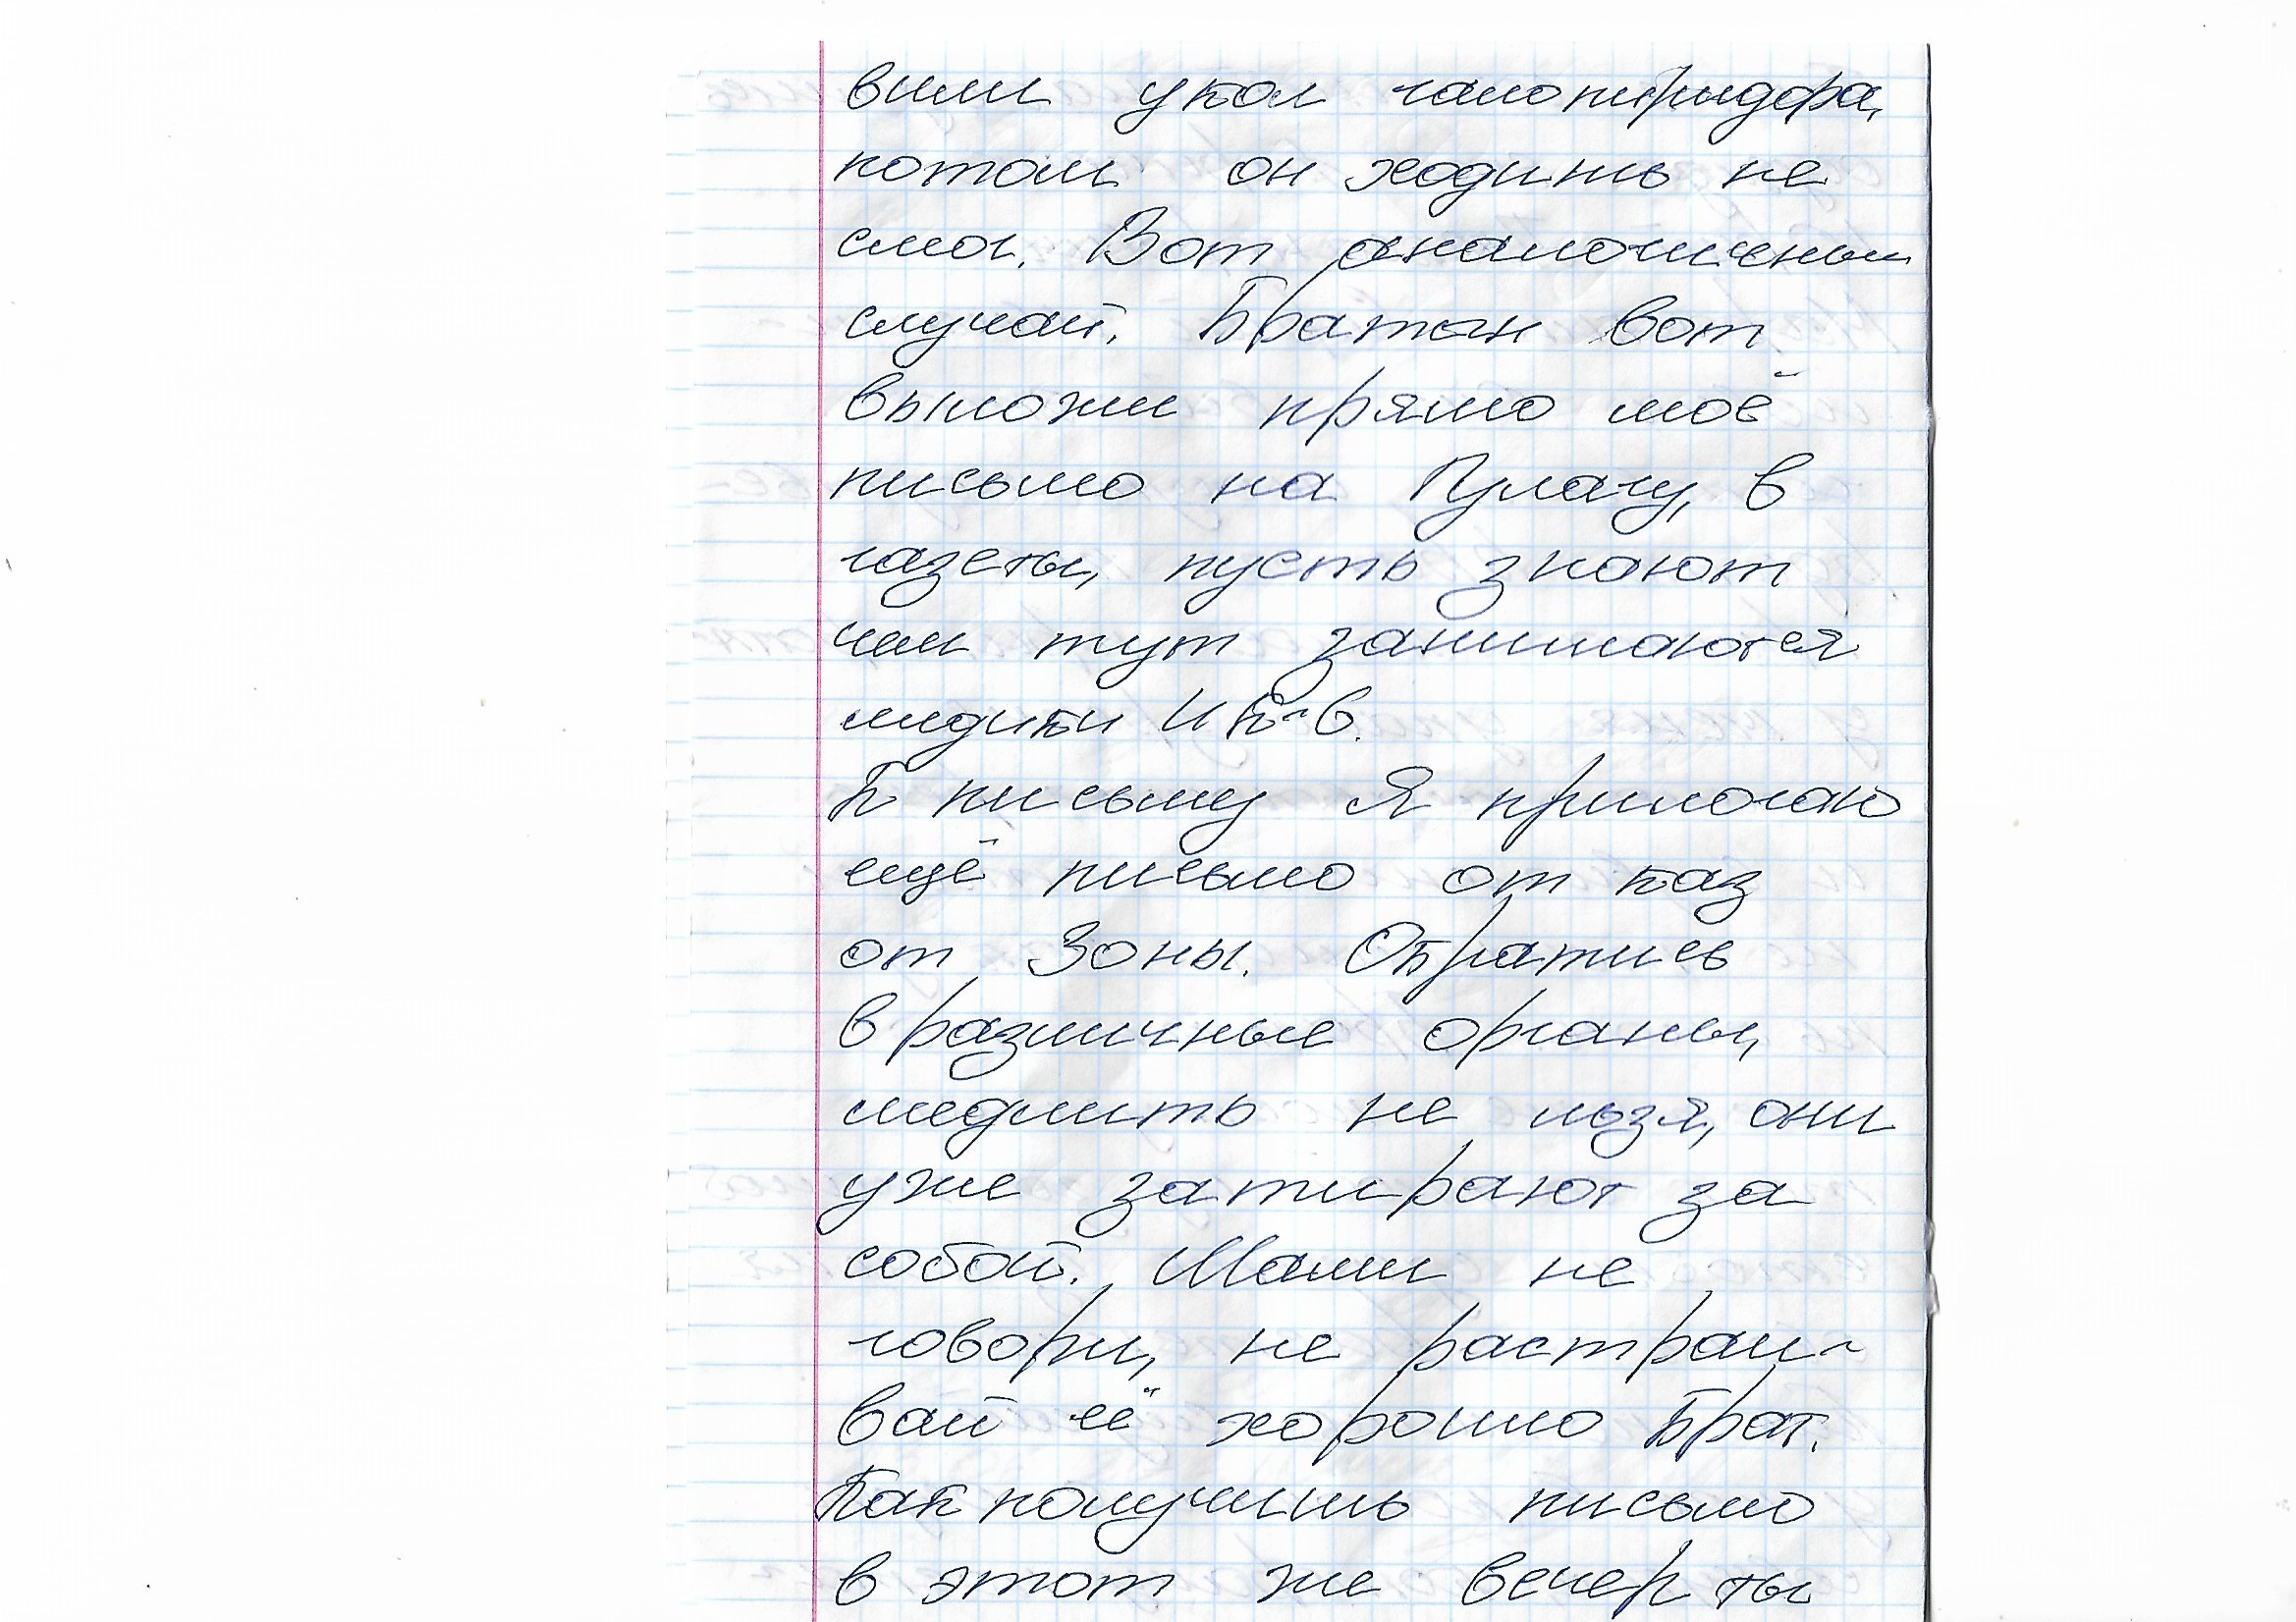 вили укол галопиридора,
потом он ходить не
смог. Вот аналогичный
случай. Братан вот
выложи прямо моё
письмо на Гулагу, в
газеты, пусть знают
чем тут занимаются
медики ИК-6.
К письму Я прилогаю
ещё письмо от каз
от Зоны. Обратись
в различные органы,
медлить не льзя, они
уже затирают за
собой. Маме не
говори, не растраи-
вай её хорошо Брат.
Как получишь письмо
в этот же вечер ты